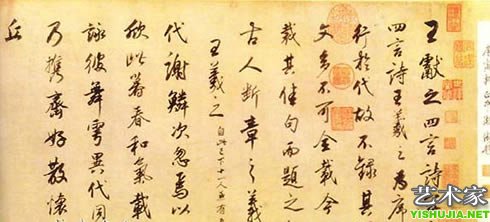 王獻之四言詩
四言詩王羲之為序
行於代故不錄其
文多不可全載今
裁其佳句而題之
古人斷章之義
王羲之 自此已下十一人並有
代謝鱗次忽焉以
欣此暮春和氣載
詠彼舞雩異代同
乃攜齊好散懷
丘
艺术家
YISHUJIA.NET